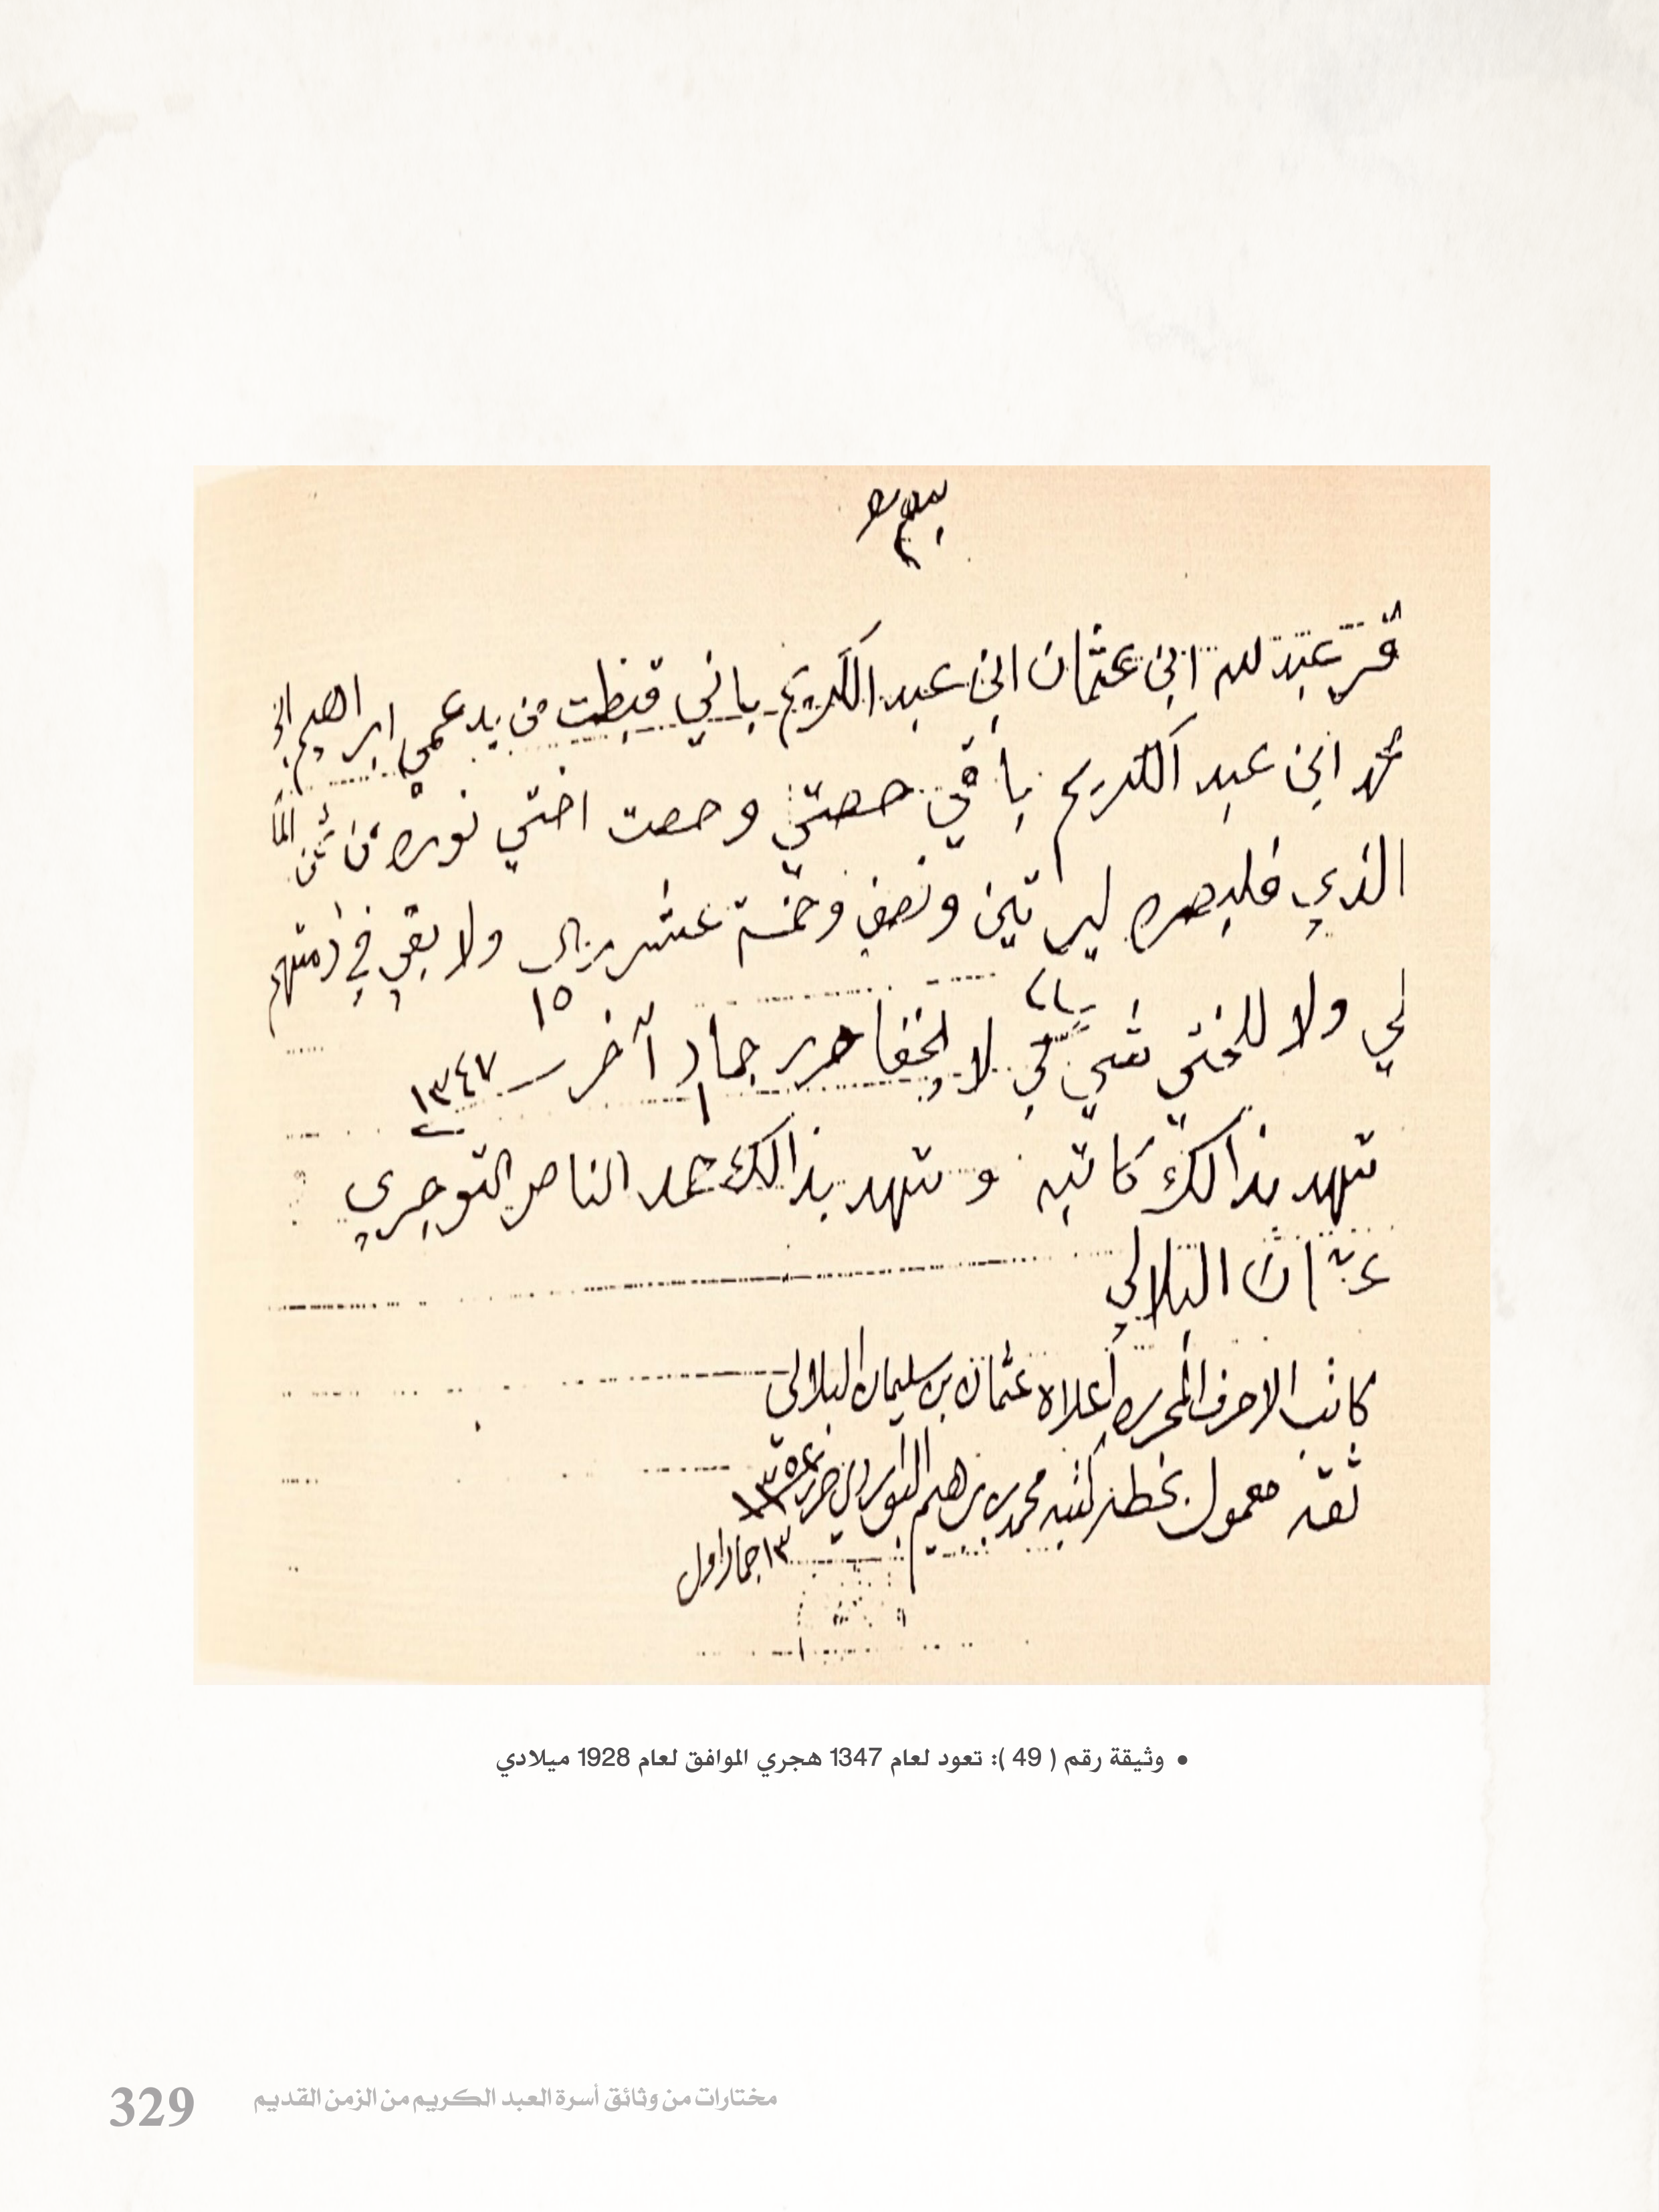 بسم
قر عبد لله ابن عثمان ابن عبد الكريم باني قبظت من يد عمي ابراهيم ابن
محمد ابن عبد الكريم باقي حصتي وحصت اختي نوره من ثمن الما
الذي فليصره ليرتين ونصف وخمستعشر ريال ولا بقي في ذمتهم
١٥
لي ولا للختي شي لكي لا يخفا حرر جماد آخر ١٣٤٧
٢
شهد بذالك كاتبه وشهد بذالك حمد الناصر التوجري
عثمان البلالي
كاتب الاحرف المحرره اعلاه عثمان بن سليمان البلالي
ثقه معمول بخطه كتبه محمد بن برهيم البواردي حرر
١٣ جماد اول
• وثيقة رقم ( 49 ): تعود لعام 1347 هجري الموافق لعام 1928 ميلادي
مختارات من وثائق أسرة العبد الكريم من الزمن القديم
329